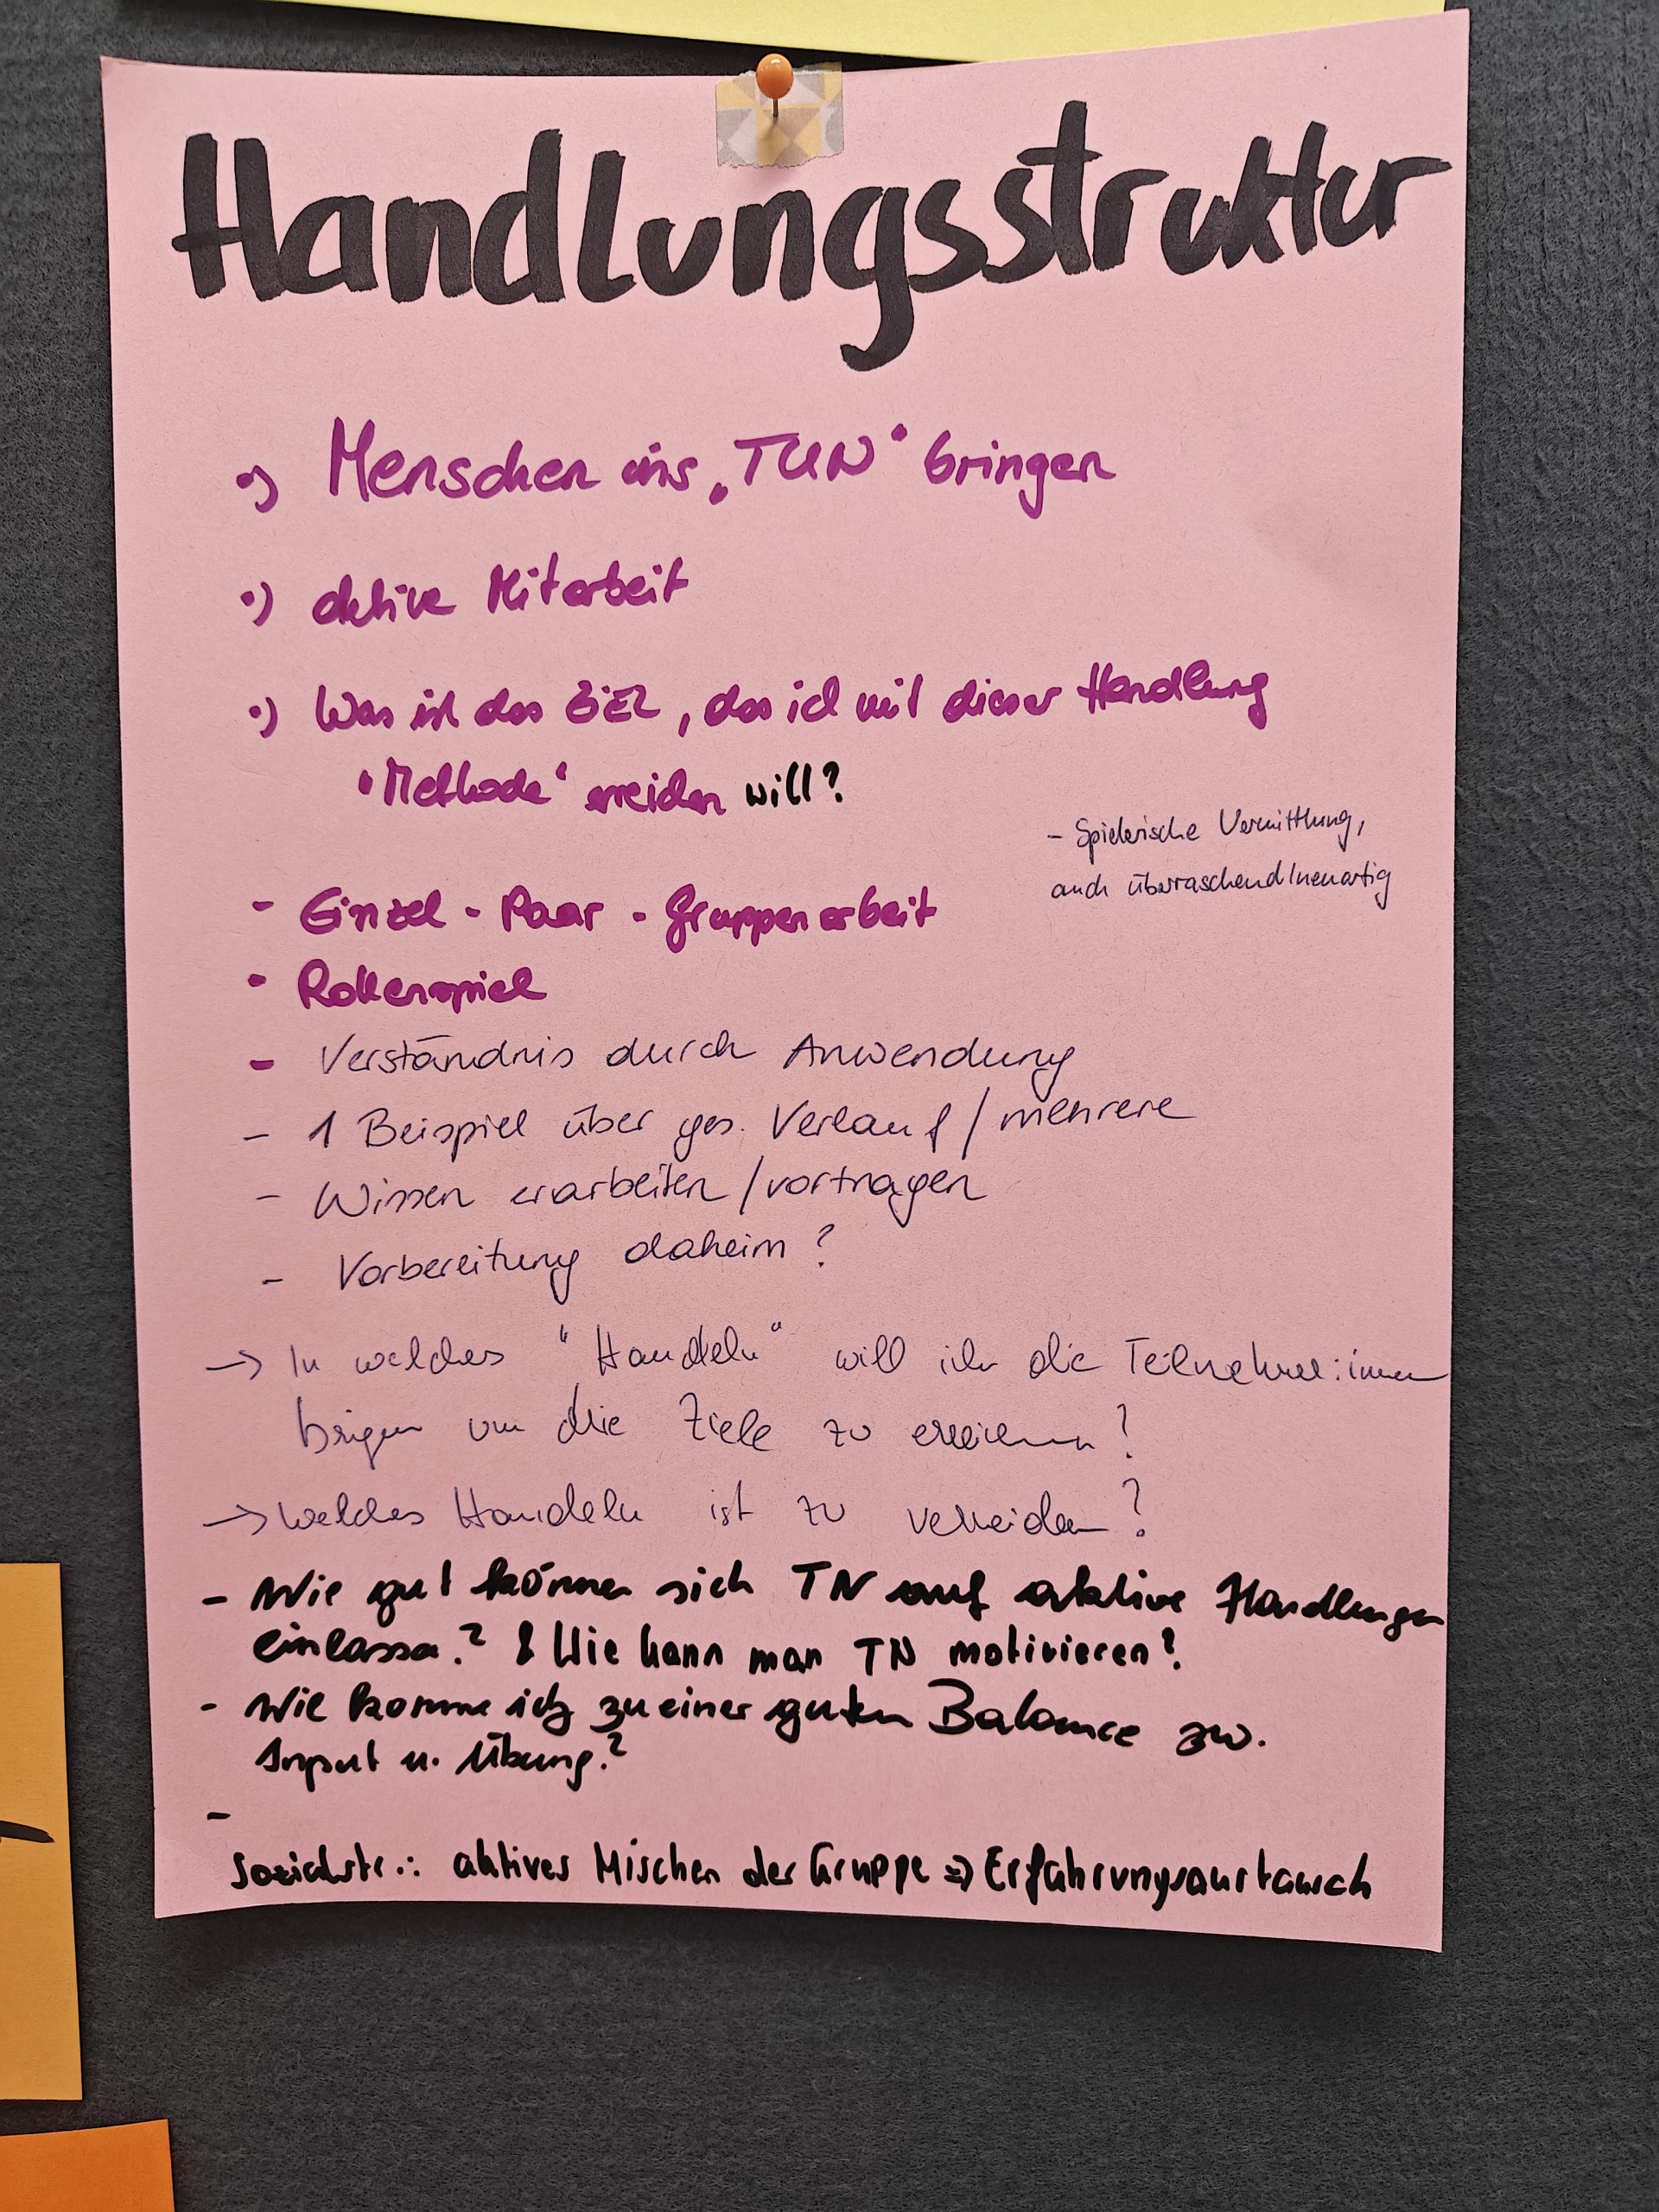 Handlungsstruktur
•) Menschen ins „TUN" bringen
•) aktive Mitarbeit
•) Was ist das ZIEL, das ich mit dieser Handlung
"Methode" erreichen will?
- Spielerische Vermittlung,
auch überraschend/neuartig
- Einzel - Paar - Gruppenarbeit
- Rollenspiel
- Verständnis durch Anwendung
- 1 Beispiel über ges. Verlauf / mehrere
- Wissen erarbeiten / vortragen
- Vorbereitung daheim?
→ In welches "Handeln" will ich die Teilnehmer:innen
bringen um die Ziele zu erreichen?
→ Welches Handeln ist zu vermeiden?
- Wie gut können sich TN auf aktive Handlungen
einlassen? & Wie kann man TN motivieren?
- Wie komme ich zu einer guten Balance zw.
Input u. Übung?
-
Sozialstr.: aktives Mischen der Gruppe => Erfahrungsaustausch